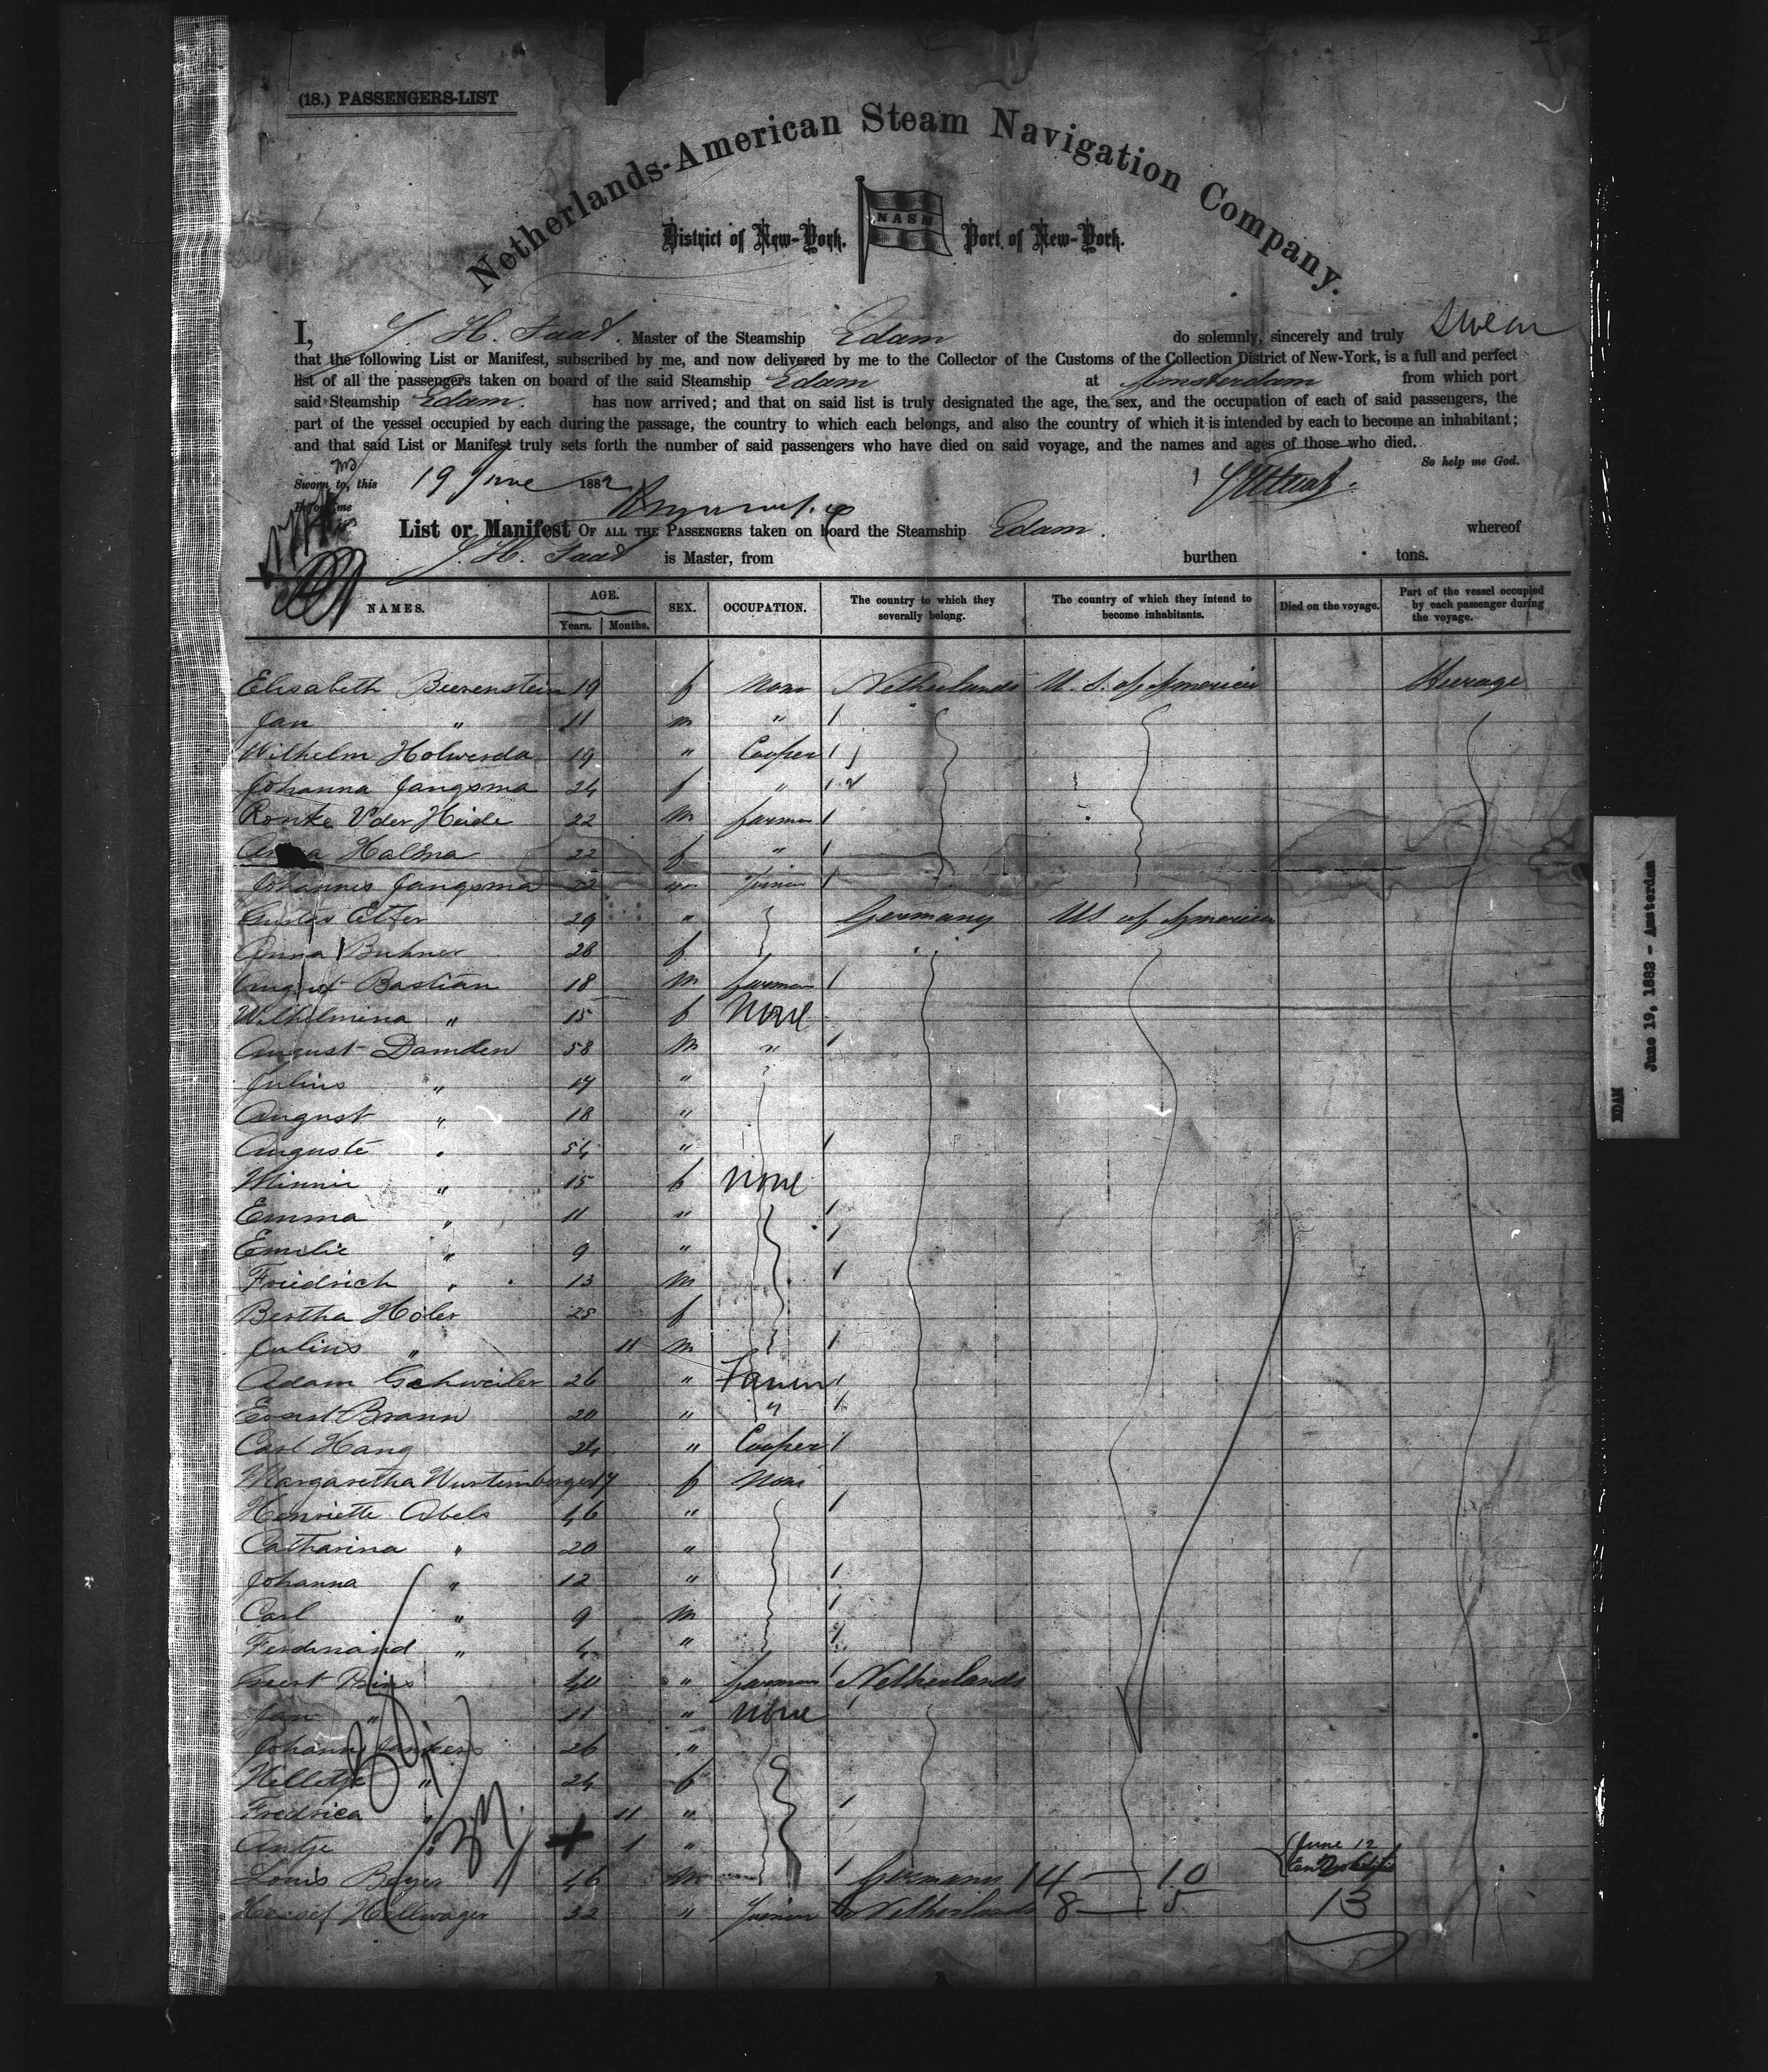 (18.) PASSENGERS-LIST
Netherlands-American Steam Navigation Company.
District of New-York. NASM Port of New-York.
I, J. H. Taat. Master of the Steamship Edam do solemnly, sincerely and truly Swear
that the following List or Manifest, subscribed by me, and now delivered by me to the Collector of the Customs of the Collection District of New-York, is a full and perfect
list of all the passengers taken on board of the said Steamship Edam at Amsterdam from which port
said Steamship Edam. has now arrived; and that on said list is truly designated the age, the sex, and the occupation of each of said passengers, the
part of the vessel occupied by each during the passage, the country to which each belongs, and also the country of which it is intended by each to become an inhabitant;
and that said List or Manifest truly sets forth the number of said passengers who have died on said voyage, and the names and ages of those who died.
So help me God.
Sworn to, this 19 June 1882
Before me
List or Manifest OF ALL THE PASSENGERS taken on board the Steamship Edam. whereof
J. H. Taat is Master, from burthen tons.
NAMES. AGE. Years. Months. SEX. OCCUPATION. The country to which they severally belong. The country of which they intend to become inhabitants. Died on the voyage. Part of the vessel occupied by each passenger during the voyage.
Elisabeth Beerenstein 19 f None Netherlands U. S. of America Steerage
Jan " 11 m "
Wilhelm Holwerda 19 " Cooper
Johanna Jangsma 24 f "
Romke Vder Heide 22 m farmer
Anna Halsma 22 f "
Johannes Jangsma 22 m
Gustav Etter 29 " Germany US of America
Anna Buhner 28 f
August Bastian 18 m farmer
Wilhelmina " 15 f None
August Damden 58 m "
Julius " 17 "
August " 18 "
Auguste " 54 "
Minnie " 15 f none
Emma " 11 "
Emilie " 9 "
Friedrich " 13 m
Bertha Holer 25 f
Julius " 11 m
Adam Gschweiler 26 " Farmer
Ernst Braun 20 " "
Carl Hang 24 " Cooper
Margaretha Wurtemberger 17 f None
Henriette Abels 46 "
Catharina " 20 "
Johanna " 12 "
Carl " 9 m
Ferdinand " 4 "
Geert Prins 40 " farmer Netherlands
Jan " 11 " none
Johann Jankers 26 "
Hilletje " 24 f
Fredrica " 11 "
Antje " 1 " June 12
Louis Beyer 46 m Germany 14 — 10
Hessel Hellwager 32 " Netherlands 8 — 5 13
EDAM
June 19, 1882 - Amsterdam